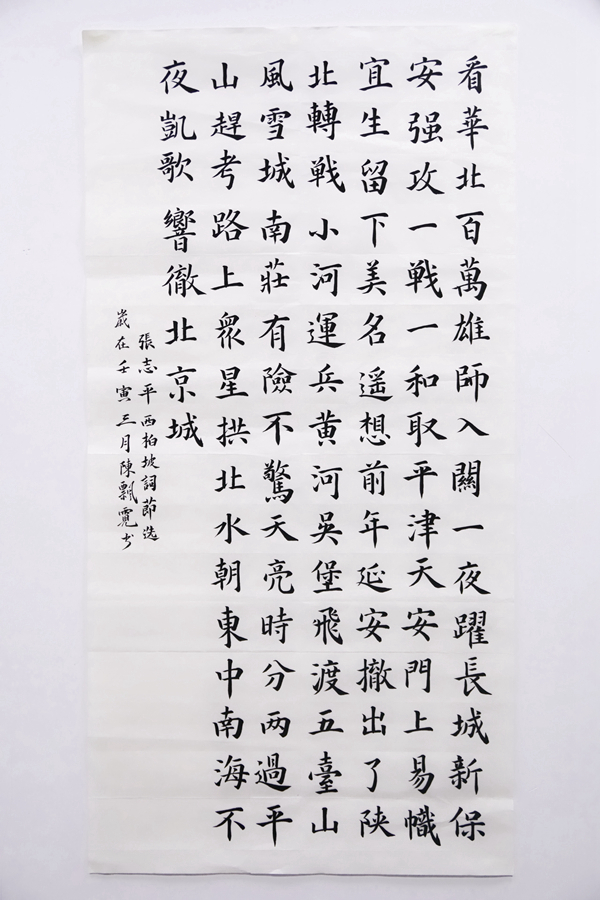 看華北百萬雄師入關一夜躍長城新保
安强攻一戰一和取平津天安門上易幟
宜生留下美名遥想前年延安撤出了陝
北轉戰小河運兵黄河吳堡飛渡五臺山
風雪城南莊有險不驚天亮時分兩過平
山趕考路上衆星拱北水朝東中南海不
夜凱歌響徹北京城
張志平西柏坡詞節选
歲在壬寅三月陳飄霓书